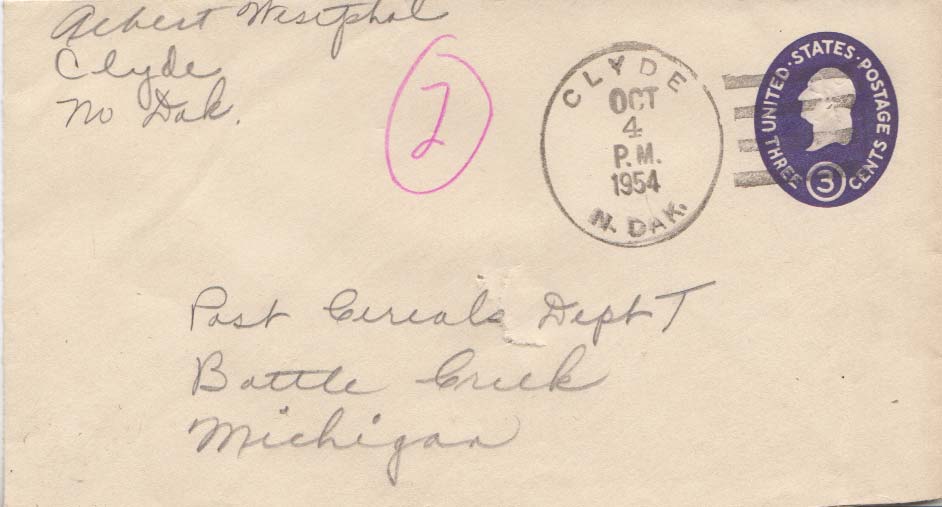 Albert Westphal
Clyde
No Dak.
2
CLYDE
OCT
4
P.M.
1954
N. DAK.
UNITED · STATES · POSTAGE
THREE 3 CENTS
Post Cereals Dept T
Battle Creek
Michigan